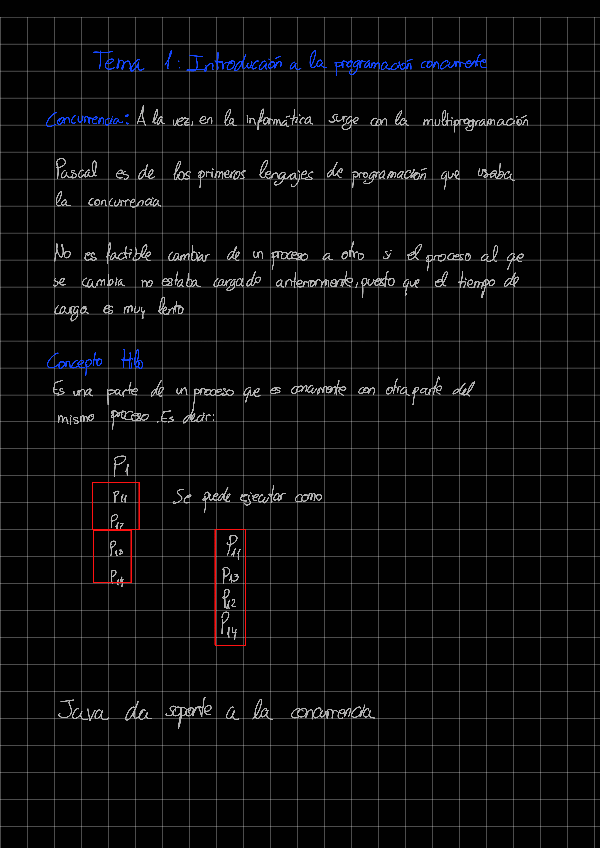 Tema 1: Introducción a la programación concurrente
Concurrencia: A la vez, en la informática surge con la multiprogramación
Pascal es de los primeros lengajes de programación que usaba
la concurrencia
No es factible cambiar de un proceso a otro si el proceso al qe
se cambia no estaba cargado anteriormente, puesto que el tiempo de
carga es muy lento
Concepto Hilo
Es una parte de un proceso que es concurrente con otra parte del
mismo proceso. Es decir:
P1
P11 Se puede ejecutar como
P12
P13
P14
P11
P13
P12
P14
Java da soporte a la concurrencia